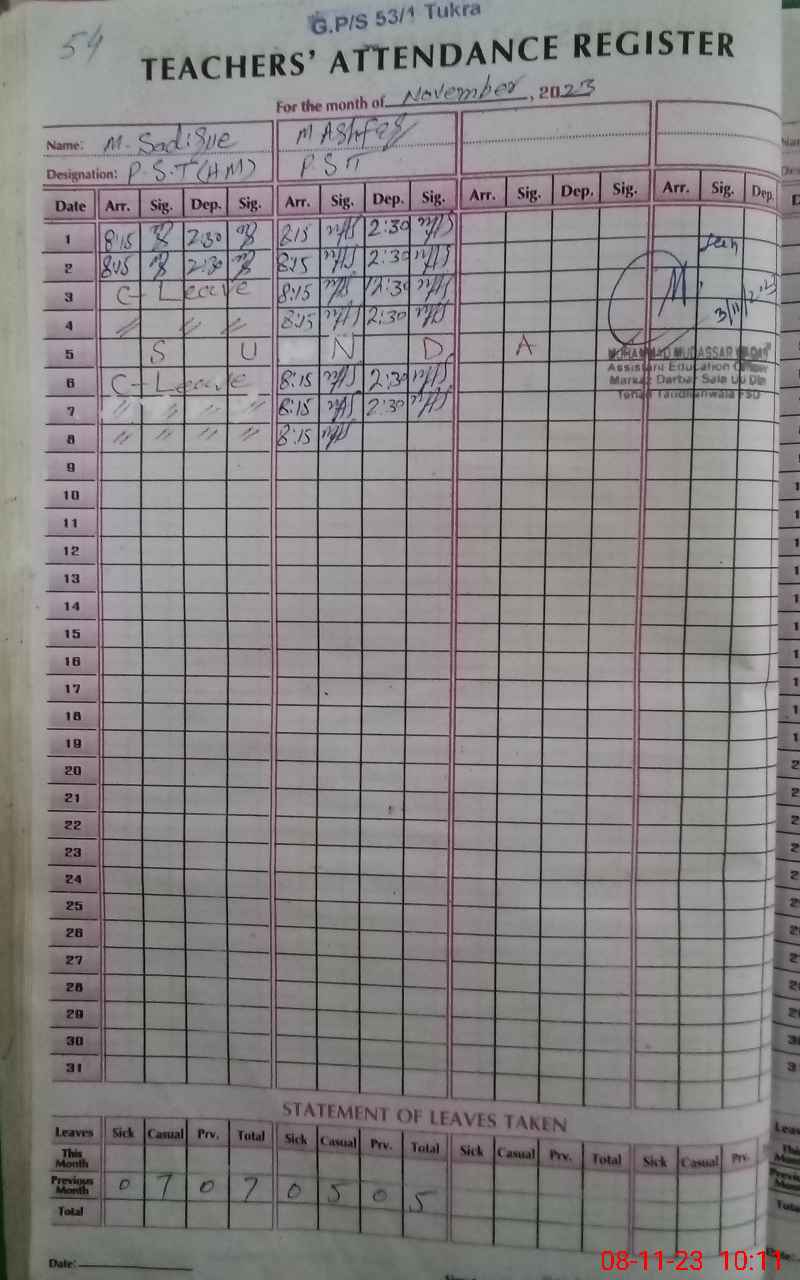 54
G.P/S 53/1 Tukra
TEACHERS' ATTENDANCE REGISTER
For the month of November, 2023
Name: M. Sadique M Ashfaq
Designation: P.S.T (HM) P S T
Date Arr. Sig. Dep. Sig. Arr. Sig. Dep. Sig. Arr. Sig. Dep. Sig. Arr. Sig. Dep.
1 8:15 2:30 8:15 2:30
2 8:15 2:30 8:15 2:30
3 C-Leave 8:15 2:30
4 〃 〃 〃 8:15 2:30 3/11/2023
5 S U N D A
MUHAMMAD MUDASSAR
6 C-Leave 8:15 2:30
Assistant Education Officer
Markaz Darbar Sain Ud Din
7 〃 〃 〃 〃 8:15 2:30
8 〃 〃 〃 〃 8:15
9
10
11
12
13
14
15
16
17
18
19
20
21
22
23
24
25
26
27
28
29
30
31
STATEMENT OF LEAVES TAKEN
Leaves Sick Casual Prv. Total Sick Casual Prv. Total Sick Casual Prv. Total Sick Casual Prv.
This Month
Previous Month 0 7 0 7 0 5 0 5
Total
Date:
08-11-23 10:11